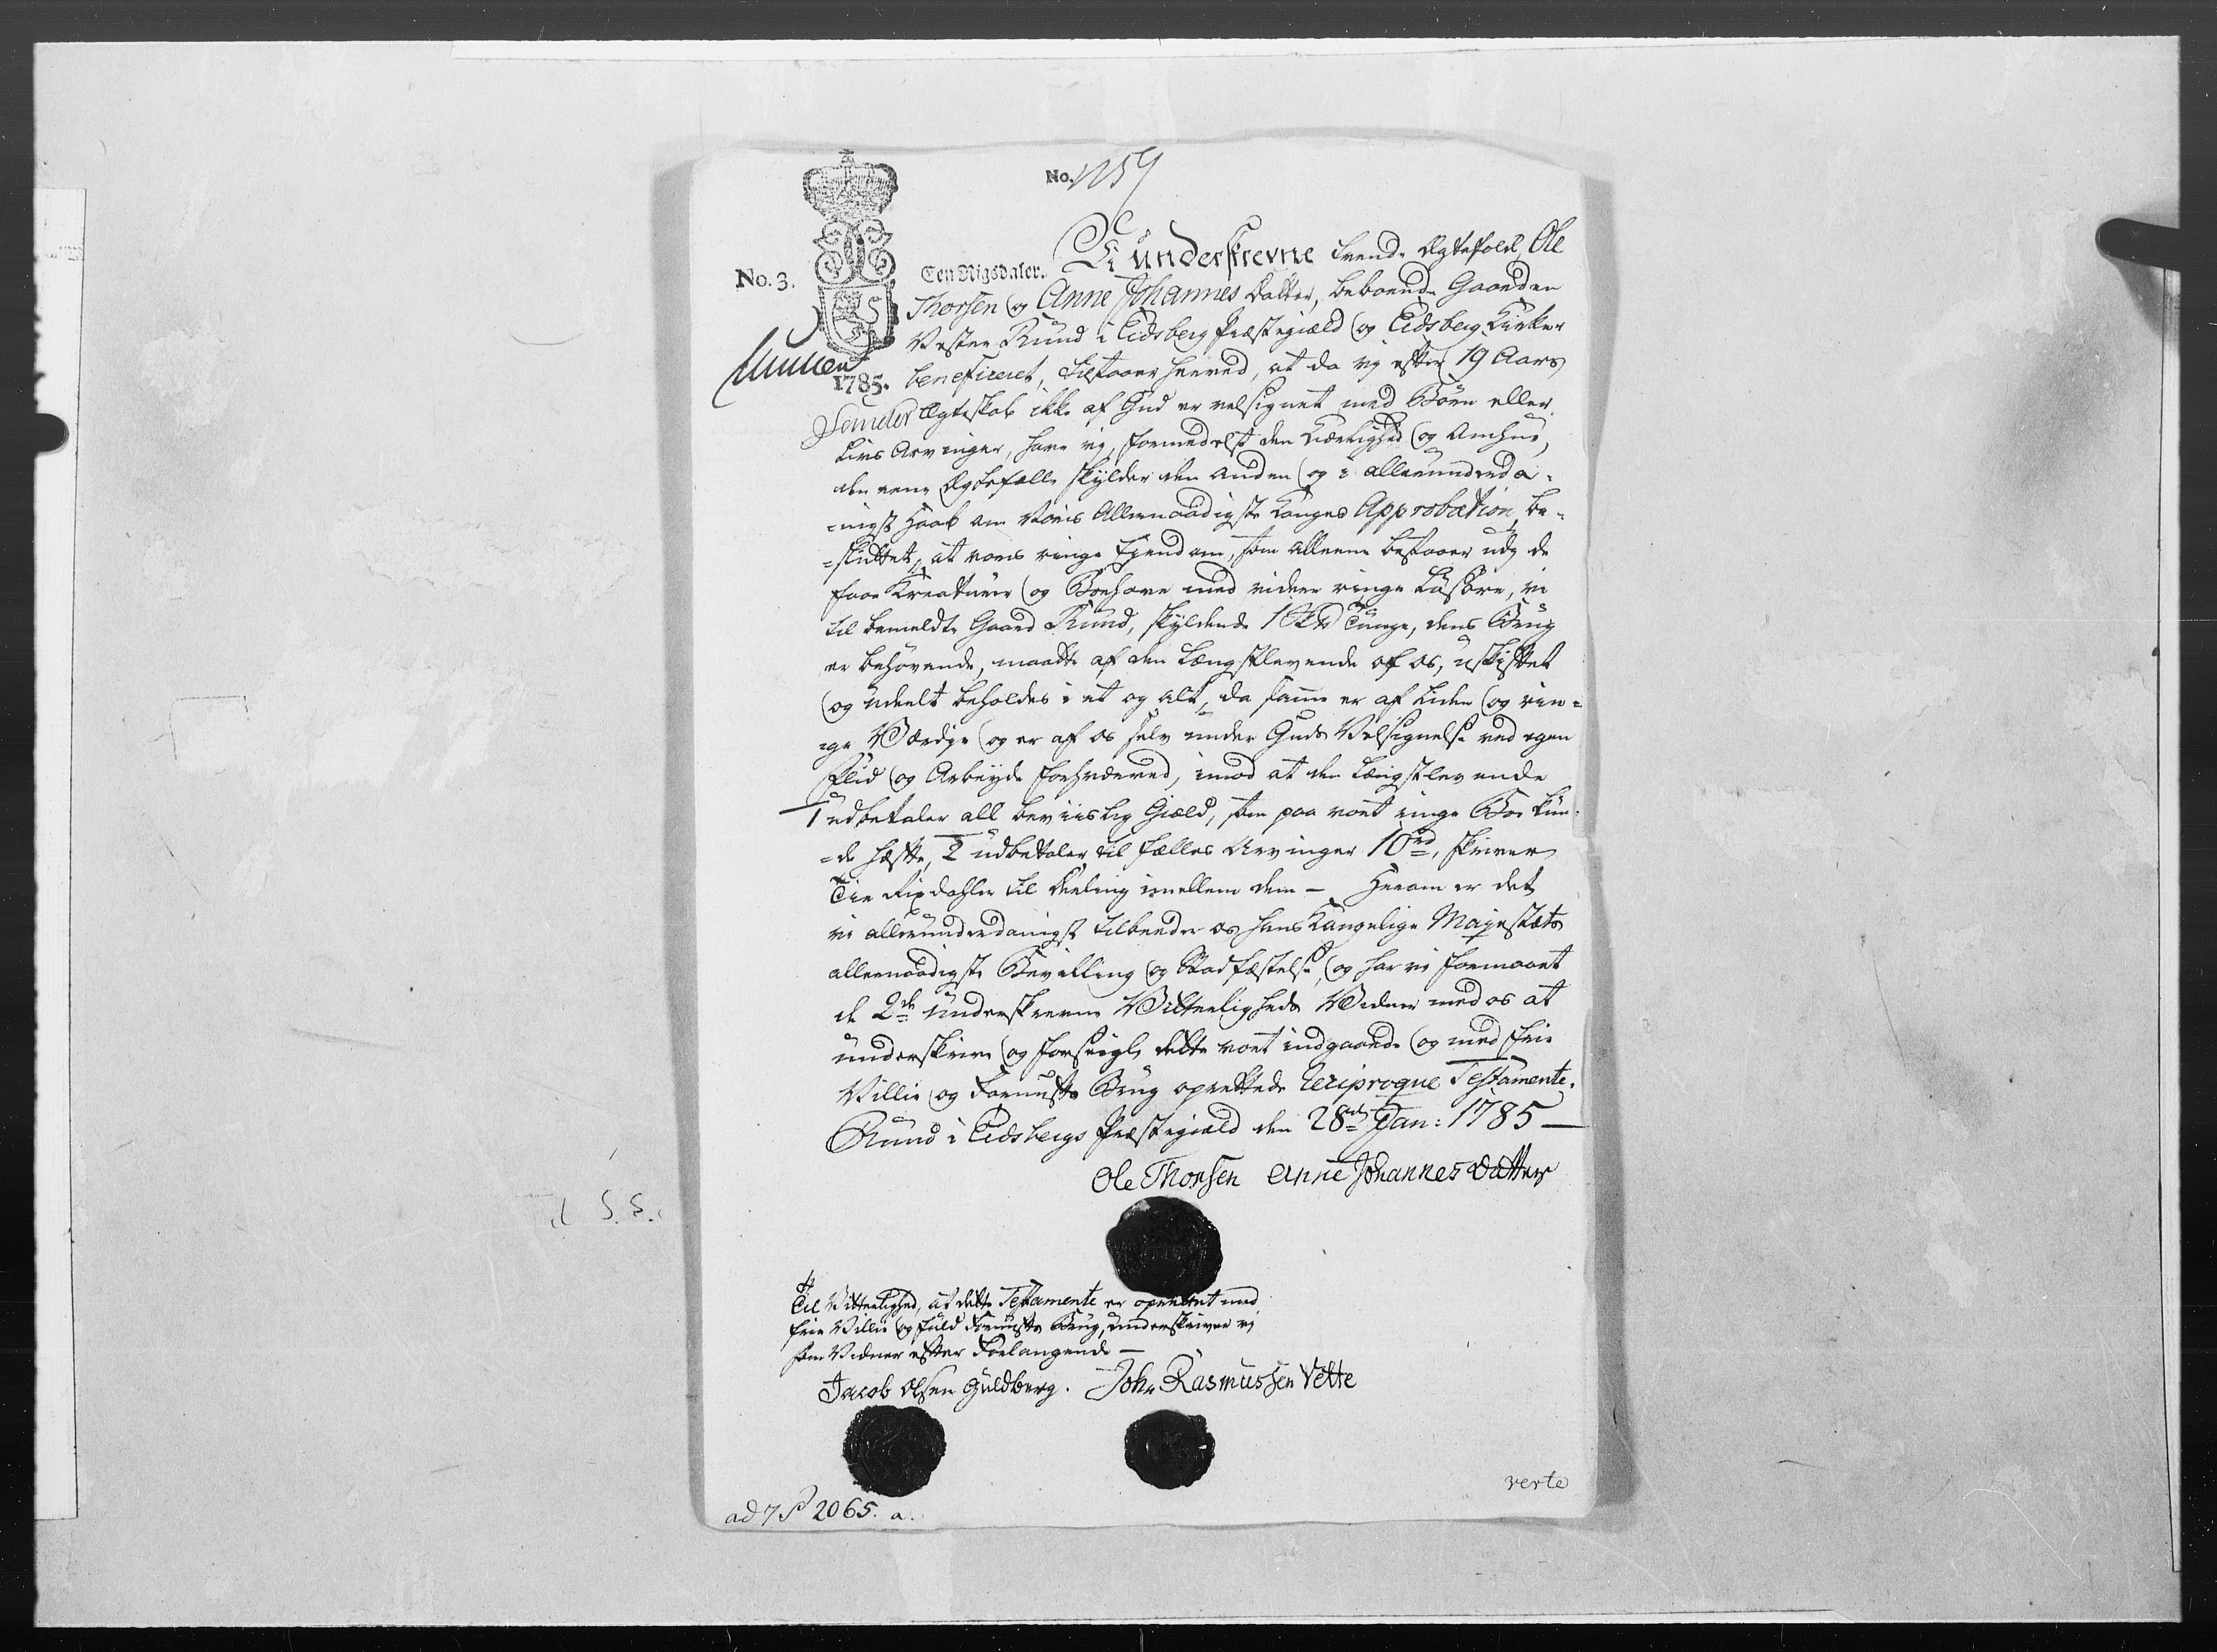 No. 1159
No. 3.
Een Rigsdaler.
1785.
Vi underskrevne tvende Ægtefolk, Ole
Thorsen og Anne Johannes Datter, beboende Gaarden
Vestre Rund i Eidsberg Præstegield og Eidsberg Kirke
beneficeret, tilstaaer herved, at da vi efter 19 Aars
Ægteskab ikke af Gud er velsignet med Børn eller
Livs Arvinger, have vi, formedelst den Kierlighed og Omhue,
den eene Ægtefælle skylder den anden og i allerunderda-
-nigst Haab om Vores Allernaadigste Konges Approbation, be-
-sluttet, at vores ringe Ejendom, som alleene bestaaer udj de
faae Kreature og Boehave med videre ringe Løsøre, vi
til bemeldte Gaard Rund, skyldende 1 Skd Tunge, dens Brug
er behøvende, maatte af den Længstlevende af os, uskiftet
og udeelt beholdes i et og alt, da samme er af liden og rin-
-ge Værdie og er af os selv under Guds Velsignelse ved egen
Fliid og Arbeyde forhværved, imod at den Længstlevende
1 udbetaler all beviislig Giæld, som paa vort ringe Boe kun-
-de hæfte, 2 udbetaler til fælles Arvinger 10 rd, skriver
Tie Rixdahler til Deeling imellem dem — Herom er det
vi allerunderdanigst udbeder os hans Kongelige Majestæts
allernaadigste Bevilling og Stadfæstelse, og har vi formaaet
de 2de underskrevne Vitterligheds Vidner med os at
underskrive og forseigle dette vort indgaaende og med frie
Villie og Fornufts Brug oprettede reciproque Testamente.
Rund i Eidsbergs Præstegield den 28de Jan: 1785 —
Ole Thorsen Anne Johannes Datter
Til Vitterlighed, at dette Testamente er oprettet med
frie Villie og fuld Fornufts Brug, underskriver vi
som Vidner efter Forlangende —
Jacob Olsen Guldberg. Joh. Rasmussen Vette
verte
ad 7 S 2065. a.
Til S. S.